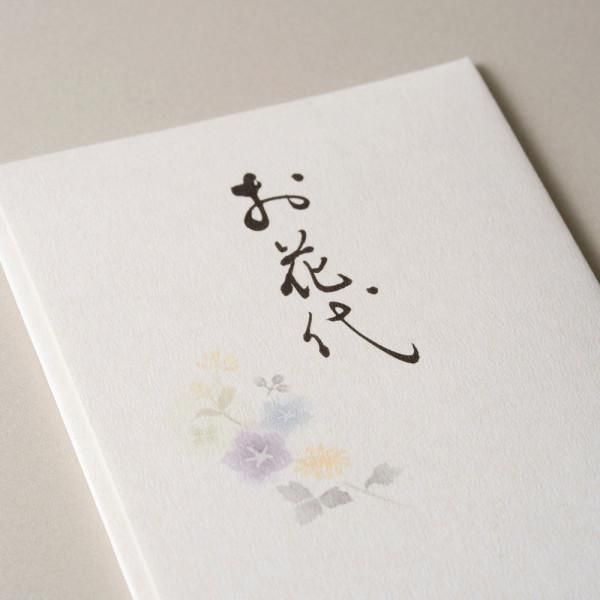 お花代